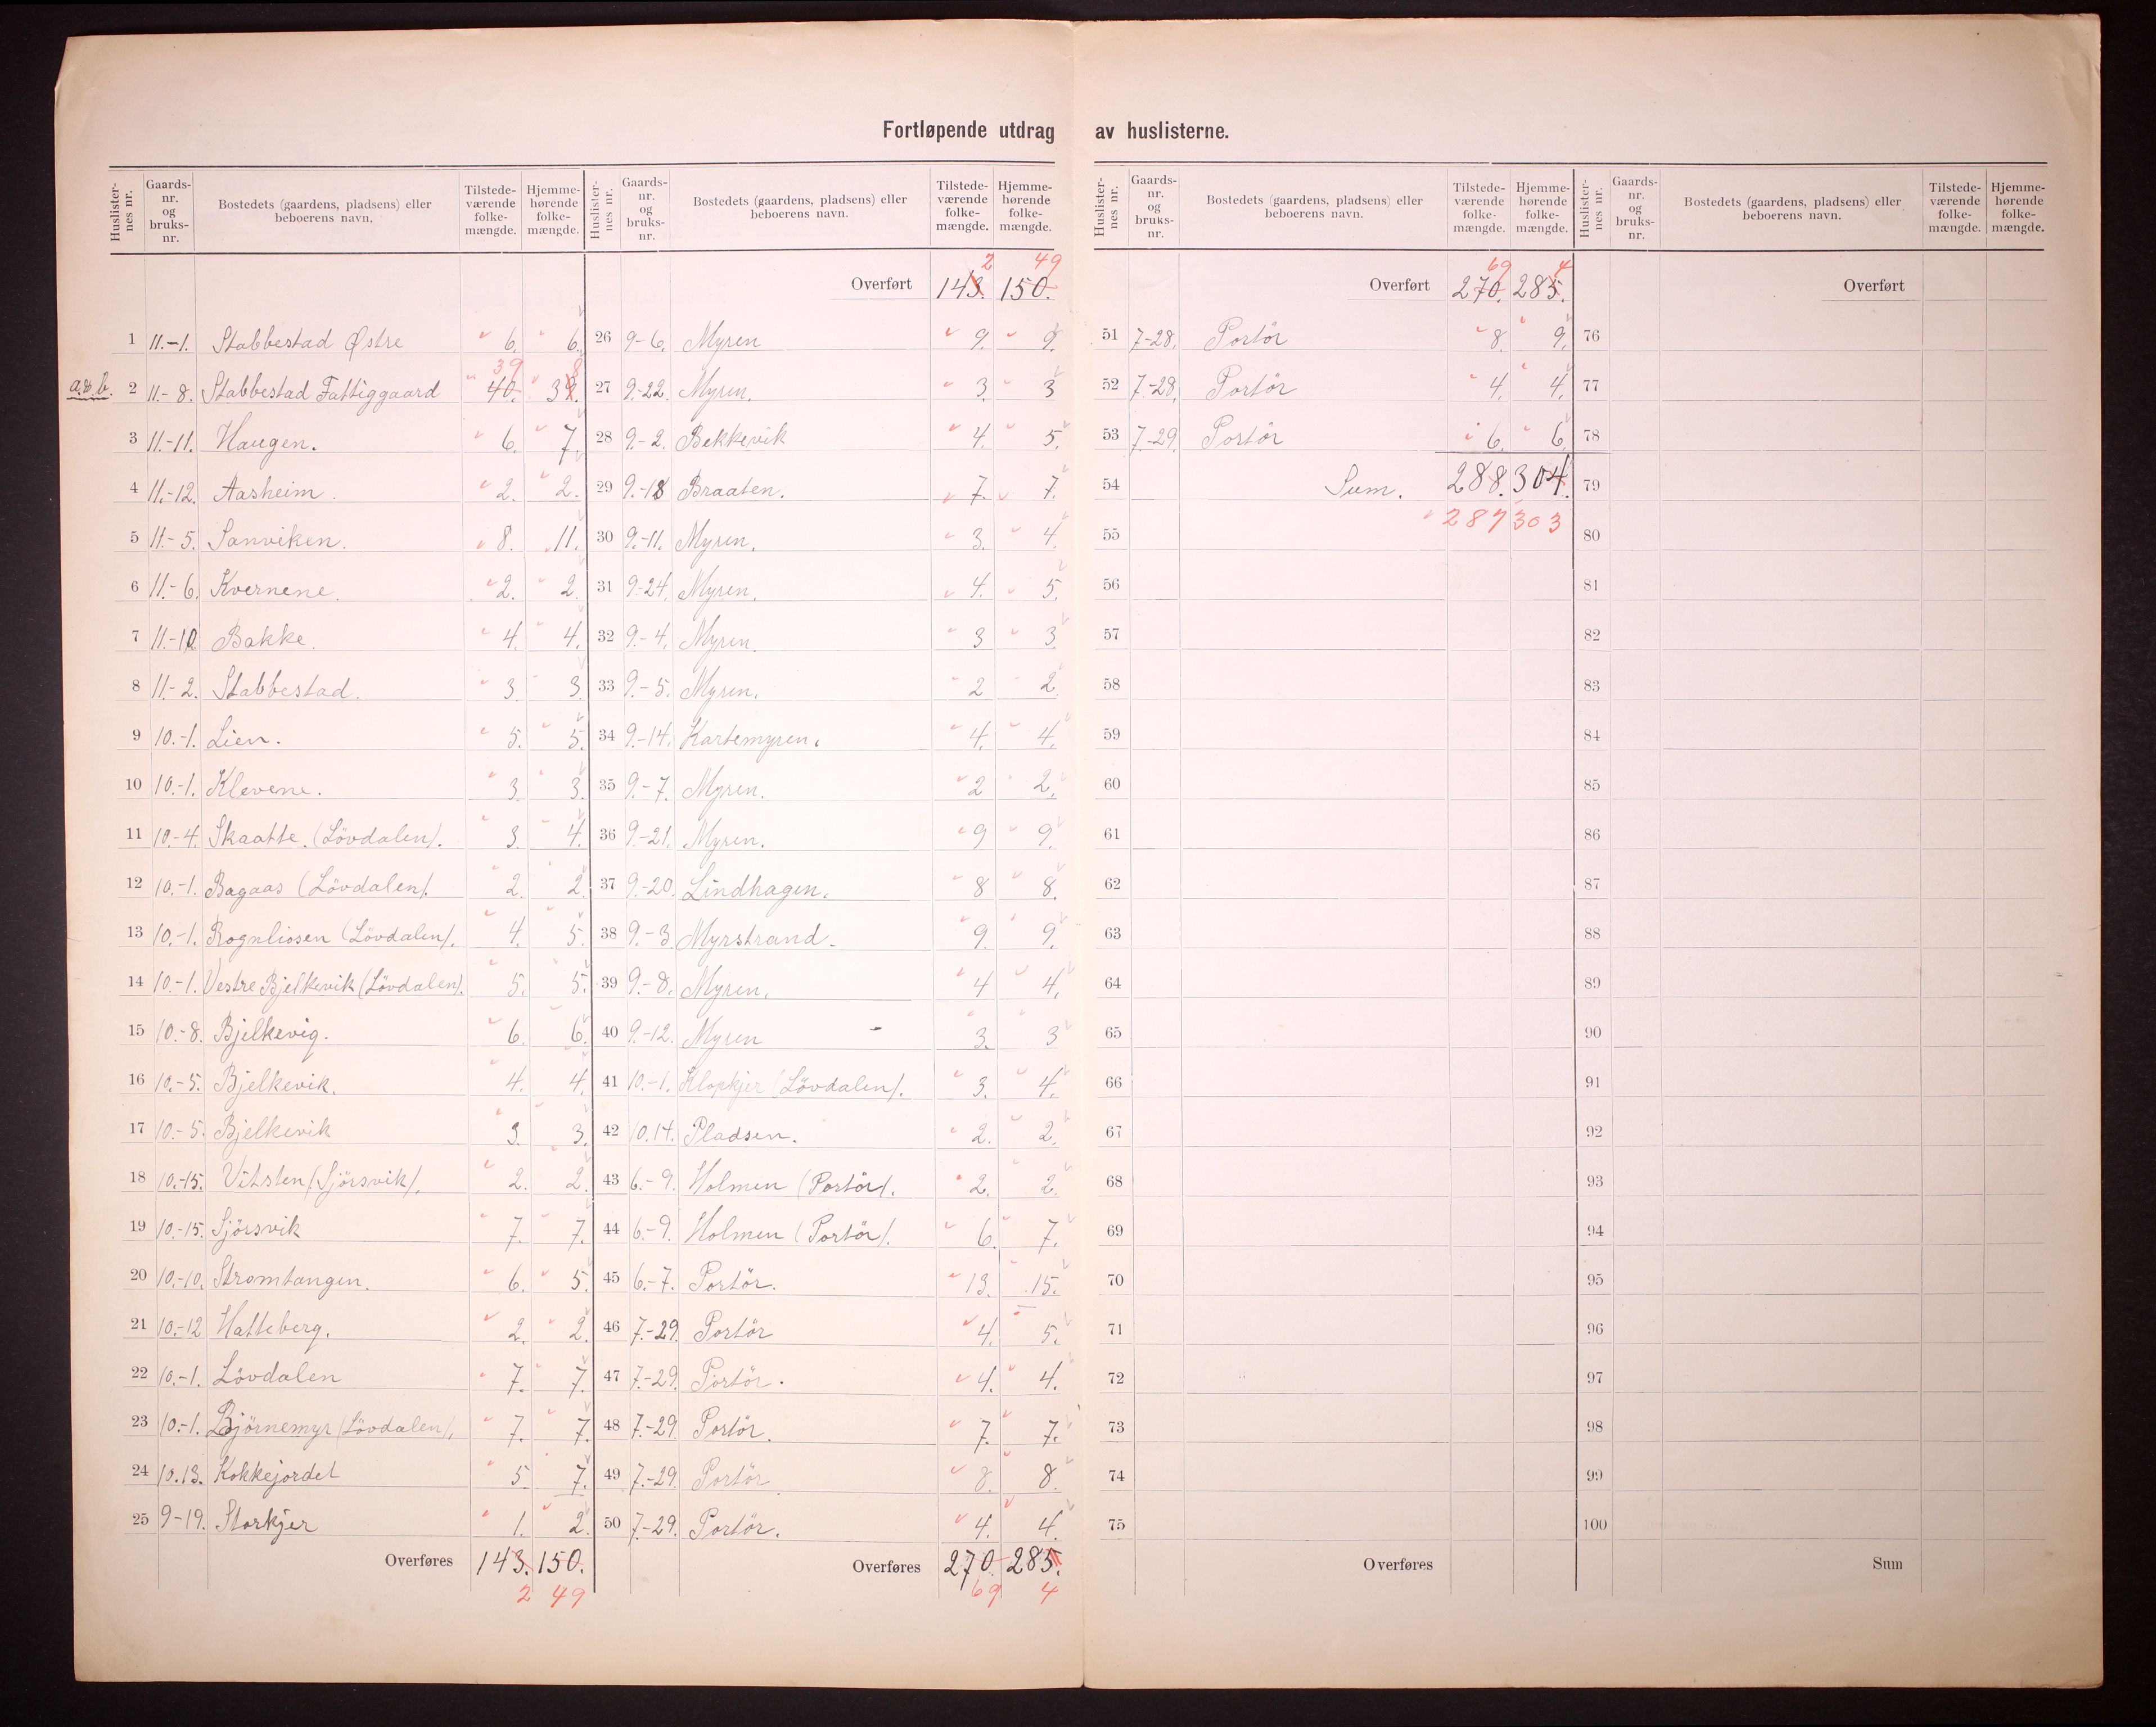 Fortløpende utdrag av huslisterne.
Huslister-nes nr. Gaards-nr. og bruks-nr. Bostedets (gaardens, pladsens) eller beboerens navn. Tilstede-værende folke-mængde. Hjemme-hørende folke-mængde.
1 11.-1. Stabbestad Østre 6. 6.
39 8
a.&b. 2 11.-8. Stabbestad Fattiggaard 40. 39.
3 11.-11. Haugen. 6. 7.
4 11.-12. Aasheim. 2. 2.
5 11.-5. Sanviken. 8. 11.
6 11.-6. Kvernene. 2. 2.
7 11.-10 Bakke. 4. 4.
8 11.-2. Stabbestad. 3. 3.
9 10.-1. Lien. 5. 5.
10 10.-1. Klevene. 3. 3.
11 10.-4. Skaatte. (Lövdalen). 3. 4.
12 10.-1. Bagaas (Lövdalen). 2. 2.
13 10.-1. Rognliosen (Lövdalen). 4. 5.
14 10.-1. Vestre Bjelkevik (Lövdalen). 5. 5.
15 10.-8. Bjelkevig. 6. 6.
16 10.-5. Bjelkevik. 4. 4.
17 10.-5. Bjelkevik 3. 3.
18 10.-15. Vitsten (Sjörsvik). 2. 2.
19 10.-15. Sjörsvik 7. 7.
20 10.-10. Stromtangen. 6. 5.
21 10.-12 Hatteberg. 2. 2.
22 10.-1. Lövdalen 7. 7.
23 10.-1. Björnemyr (Lövdalen). 7. 7.
24 10.13. Kokkejordet 5 7.
25 9-19. Storkjer 1. 2.
Overføres 143. 150.
2 49
Huslister-nes nr. Gaards-nr. og bruks-nr. Bostedets (gaardens, pladsens) eller beboerens navn. Tilstede-værende folke-mængde. Hjemme-hørende folke-mængde.
2 49
Overført 143. 150.
26 9-6. Myren 9. 9.
27 9.-22. Myren. 3. 3
28 9.-2. Bekkevik 4. 5.
29 9.-18 Braaten. 7. 7.
30 9.-11. Myren. 3. 4.
31 9.-24. Myren. 4. 5.
32 9.-4. Myren. 3 3.
33 9.-5. Myren. 2 2.
34 9.-14. Kartemyren. 4. 4.
35 9.-7. Myren. 2 2.
36 9.-21. Myren. 9 9.
37 9.-20. Lindhagen. 8 8.
38 9.-3 Myrstrand. 9. 9.
39 9.-8. Myren. 4 4.
40 9.-12. Myren - 3. 3
41 10.-1. (Lövdalen). 3. 4.
42 10.14. Pladsen. 2. 2.
43 6.-9. Holmen (Portör). 2. 2.
44 6.-9. Holmen (Portör). 6. 7.
45 6.-7. Portör. 13. 15.
46 7.-29. Portör 4. 5.
47 7.-29. Portör. 4. 4.
48 7.-29. Portör. 7. 7.
49 7.-29. Portör 8. 8.
50 7.-29. Portör. 4. 4.
Overføres 270. 285.
69 4
Huslister-nes nr. Gaards-nr. og bruks-nr. Bostedets (gaardens, pladsens) eller beboerens navn. Tilstede-værende folke-mængde. Hjemme-hørende folke-mængde.
69 4
Overført 270. 285.
51 7-28. Portör 8. 9.
52 7-28. Portör 4. 4.
53 7-29. Portör 6. 6.
54 Sum. 288. 304.
55 287 303
56
57
58
59
60
61
62
63
64
65
66
67
68
69
70
71
72
73
74
75
Overføres
Huslister-nes nr. Gaards-nr. og bruks-nr. Bostedets (gaardens, pladsens) eller beboerens navn. Tilstede-værende folke-mængde. Hjemme-hørende folke-mængde.
Overført
76
77
78
79
80
81
82
83
84
85
86
87
88
89
90
91
92
93
94
95
96
97
98
99
100
Sum